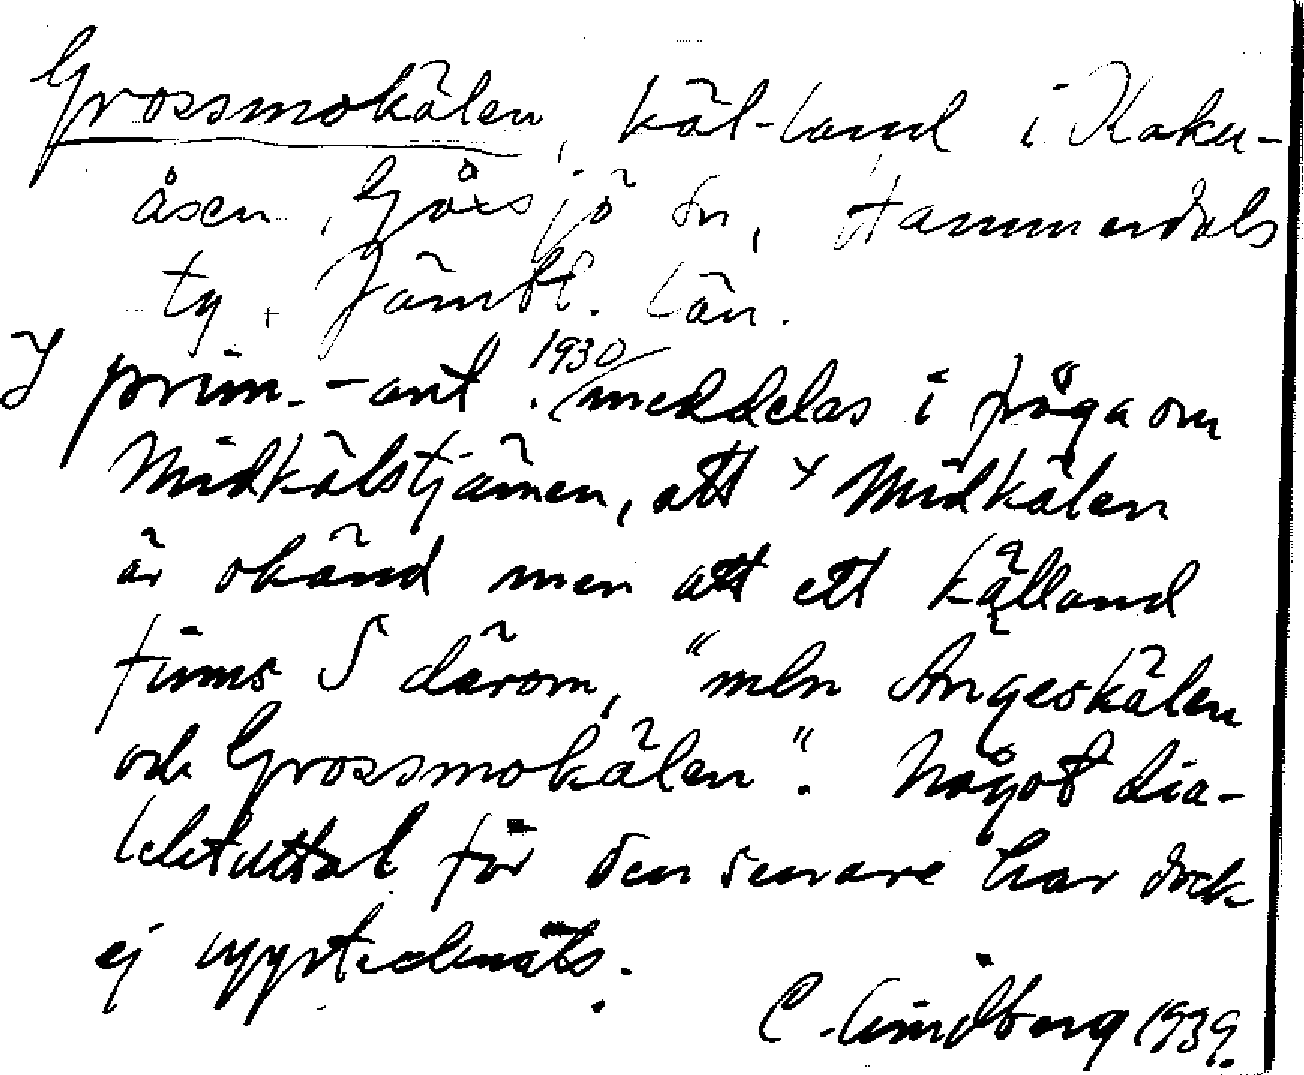 Grossmokälen, käl-land i Kaku-
åsen, Gåxsjö sn, Hammerdals
tg, Jämtl. län.
I prim.-ant. 1930 meddelas i fråga om
Midkälstjärnen, att × Midkälen
är okänd men att ett källand
finns S därom, "mln Ångeskälen
och Grossmokälen". Något dia-
lektuttal för den senare har dock
ej upptecknats.
C. Lindberg 1939.